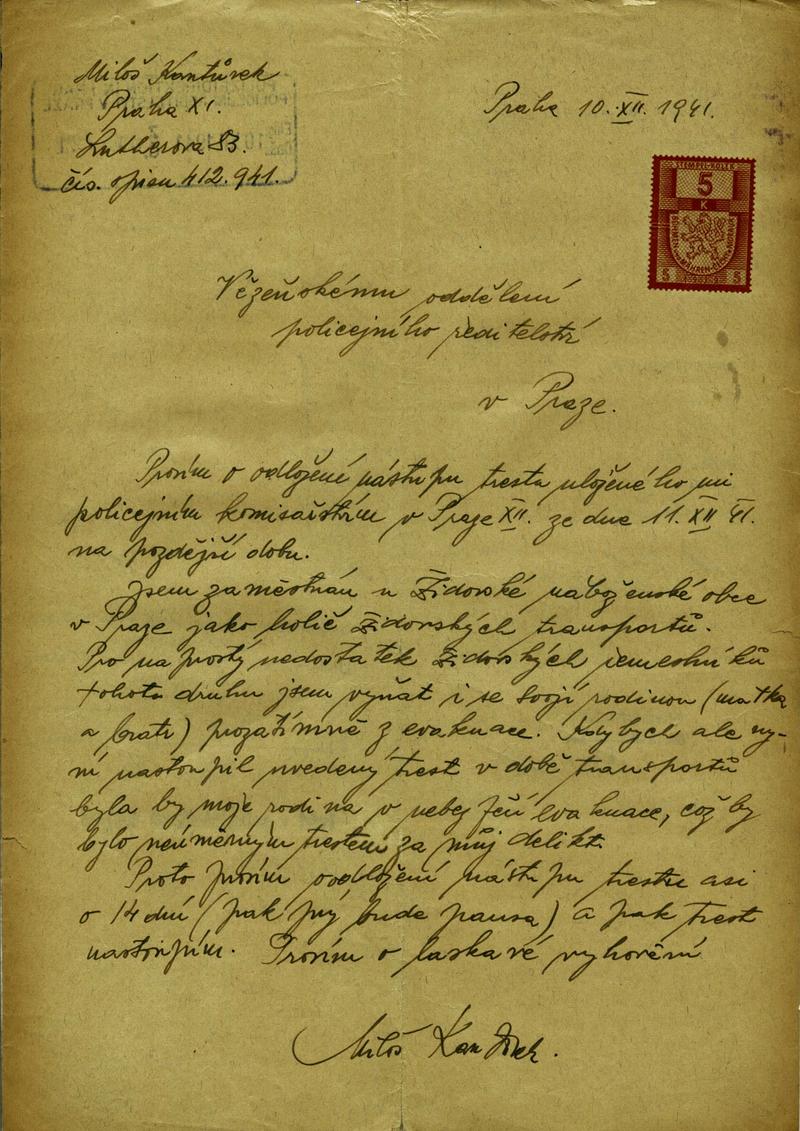 Miloš Kantůrek
Praha XI.
Lutherova 83.
čís. opisu 412.941.
Praha 10. XII. 1941.
STEMPEL-KOLEK
5
K
BÖHMEN MÄHREN ČECHY MORAVA
5 5
Vězeňskému oddělení
policejního ředitelství
v Praze.
Prosím o odložení nástupu trestu uloženého mi
policejním komisařstvím v Praze XII. ze dne 11. XII 41.
na pozdější dobu.
Jsem zaměstnán u Židovské náboženské obce
v Praze jako holič židovských transportů.
Pro naprostý nedostatek židovských řemeslníků
tohoto druhu jsem vyňat i se svojí rodinou (matka
a bratr) prozatímně z evakuace. Kdybych ale ny-
ní nastoupil uvedený trest v době transportů
byla by moje rodina v nebezpečí evakuace, což by
bylo neúměrným trestem za můj delikt.
Proto prosím o odložení nástupu trestu asi
o 14 dní (pak prý bude pausa) a pak trest
nastoupím. Prosím o laskavé vyhovění
Miloš Kantůrek.